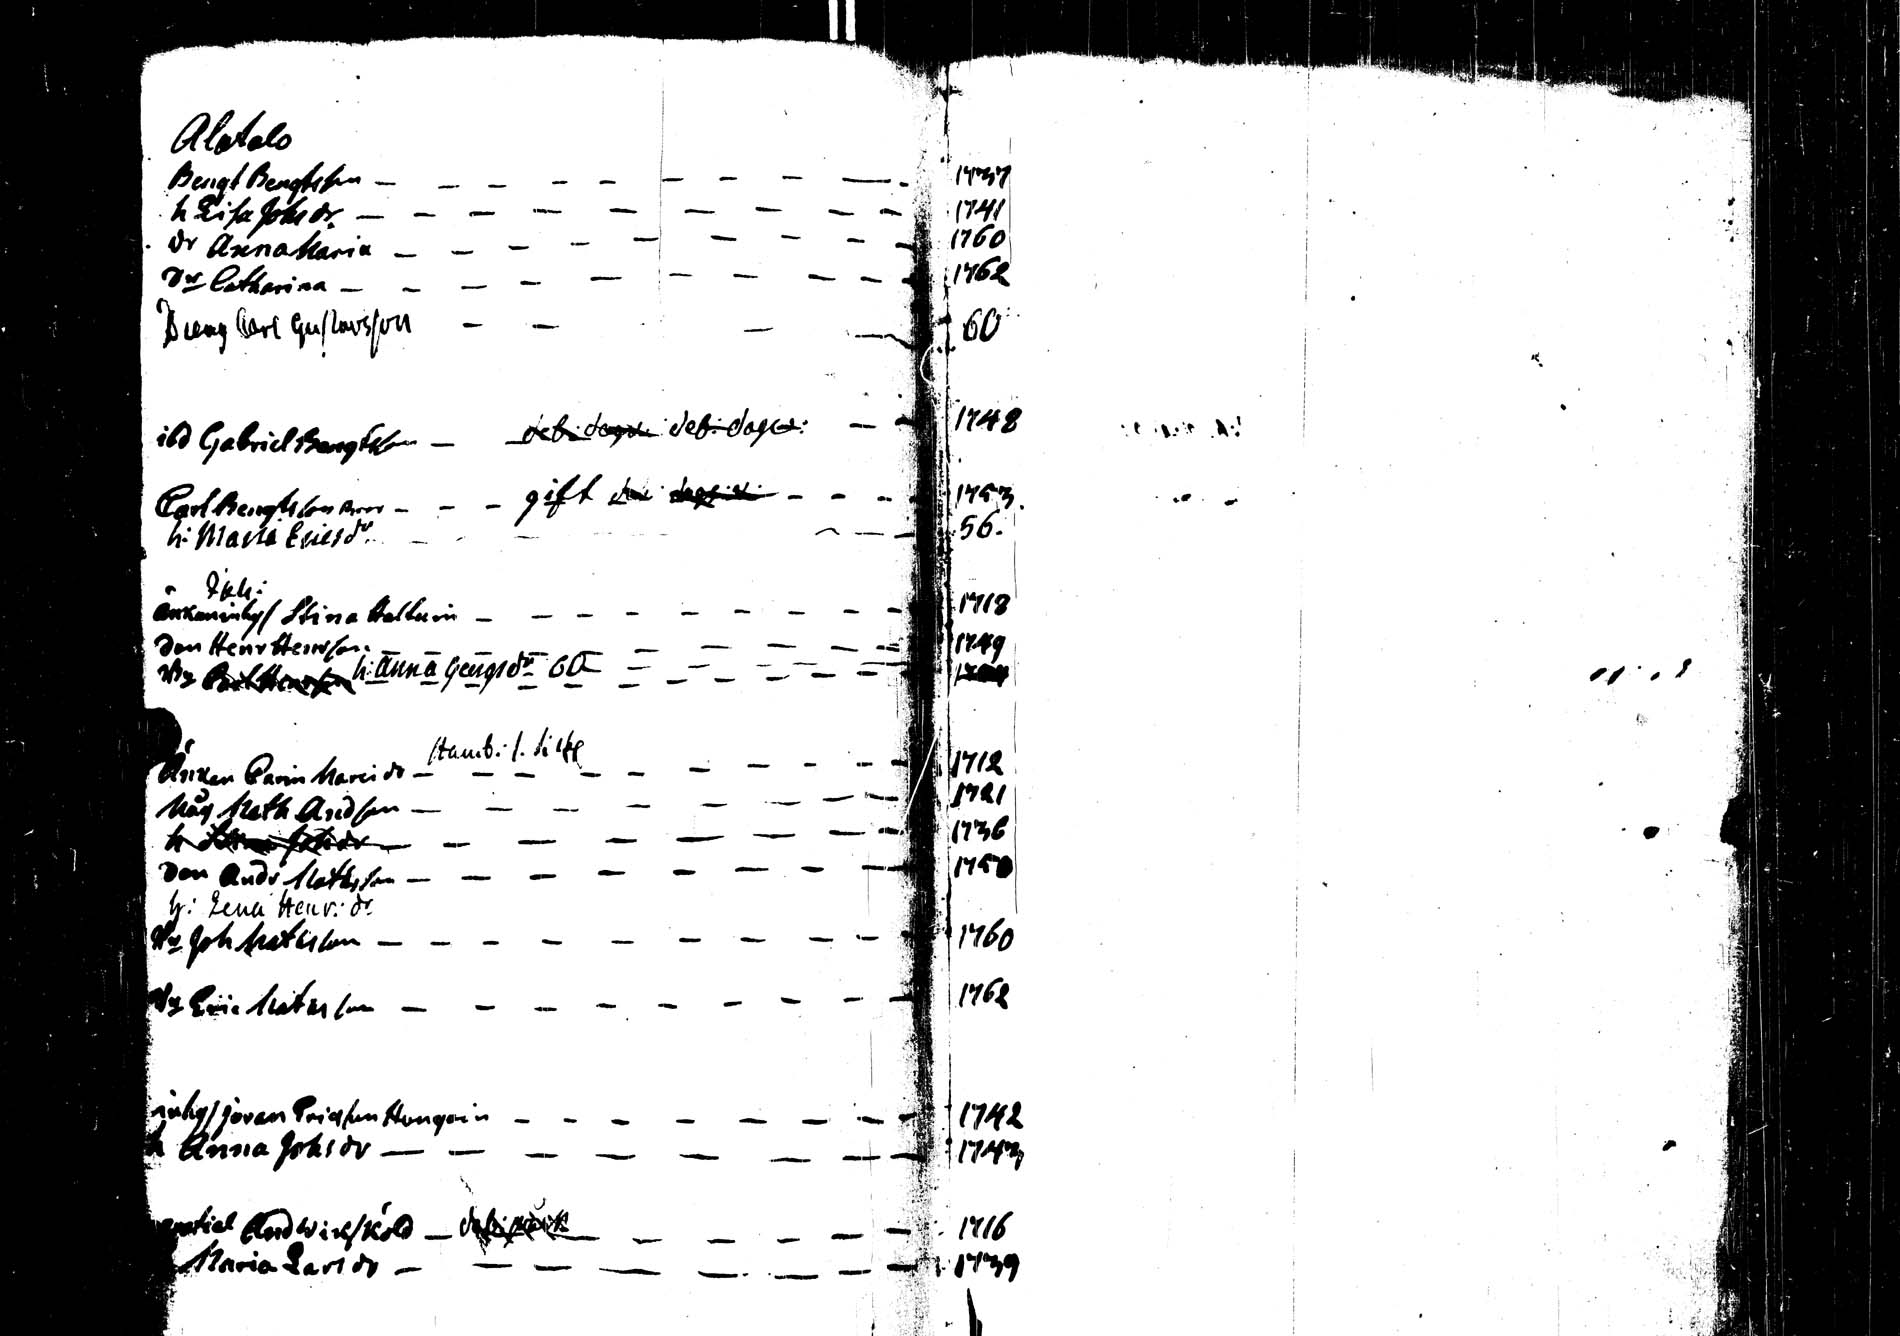 Alatalo
Bengt Bengtsson 1737
h Lisa Johsdr 1741
dr Anna Maria 1760
dr Catharina 1762
Dreng Carl Gustavsson 60
ibd Gabriel Bengtsson 1748
Carl Bengtsson 1753
gift
h: Maria Ericsdr 56.
Stina Hallwin 1718
Son Henr Henrsson 1749
h: Anna Georgsdr 60
Änkan Carin Marcidr 1712
Måg Math Andsson 1721
h 1736
Son Andr Mathsson 1750
h: Lena Henr: dr
Joh Mathsson 1760
Eric Mathsson 1762
inhys Jöran Ericsson 1742
h Anna Johsdr 1743
And Wirksköld 1716
Maria Larsdr 1739